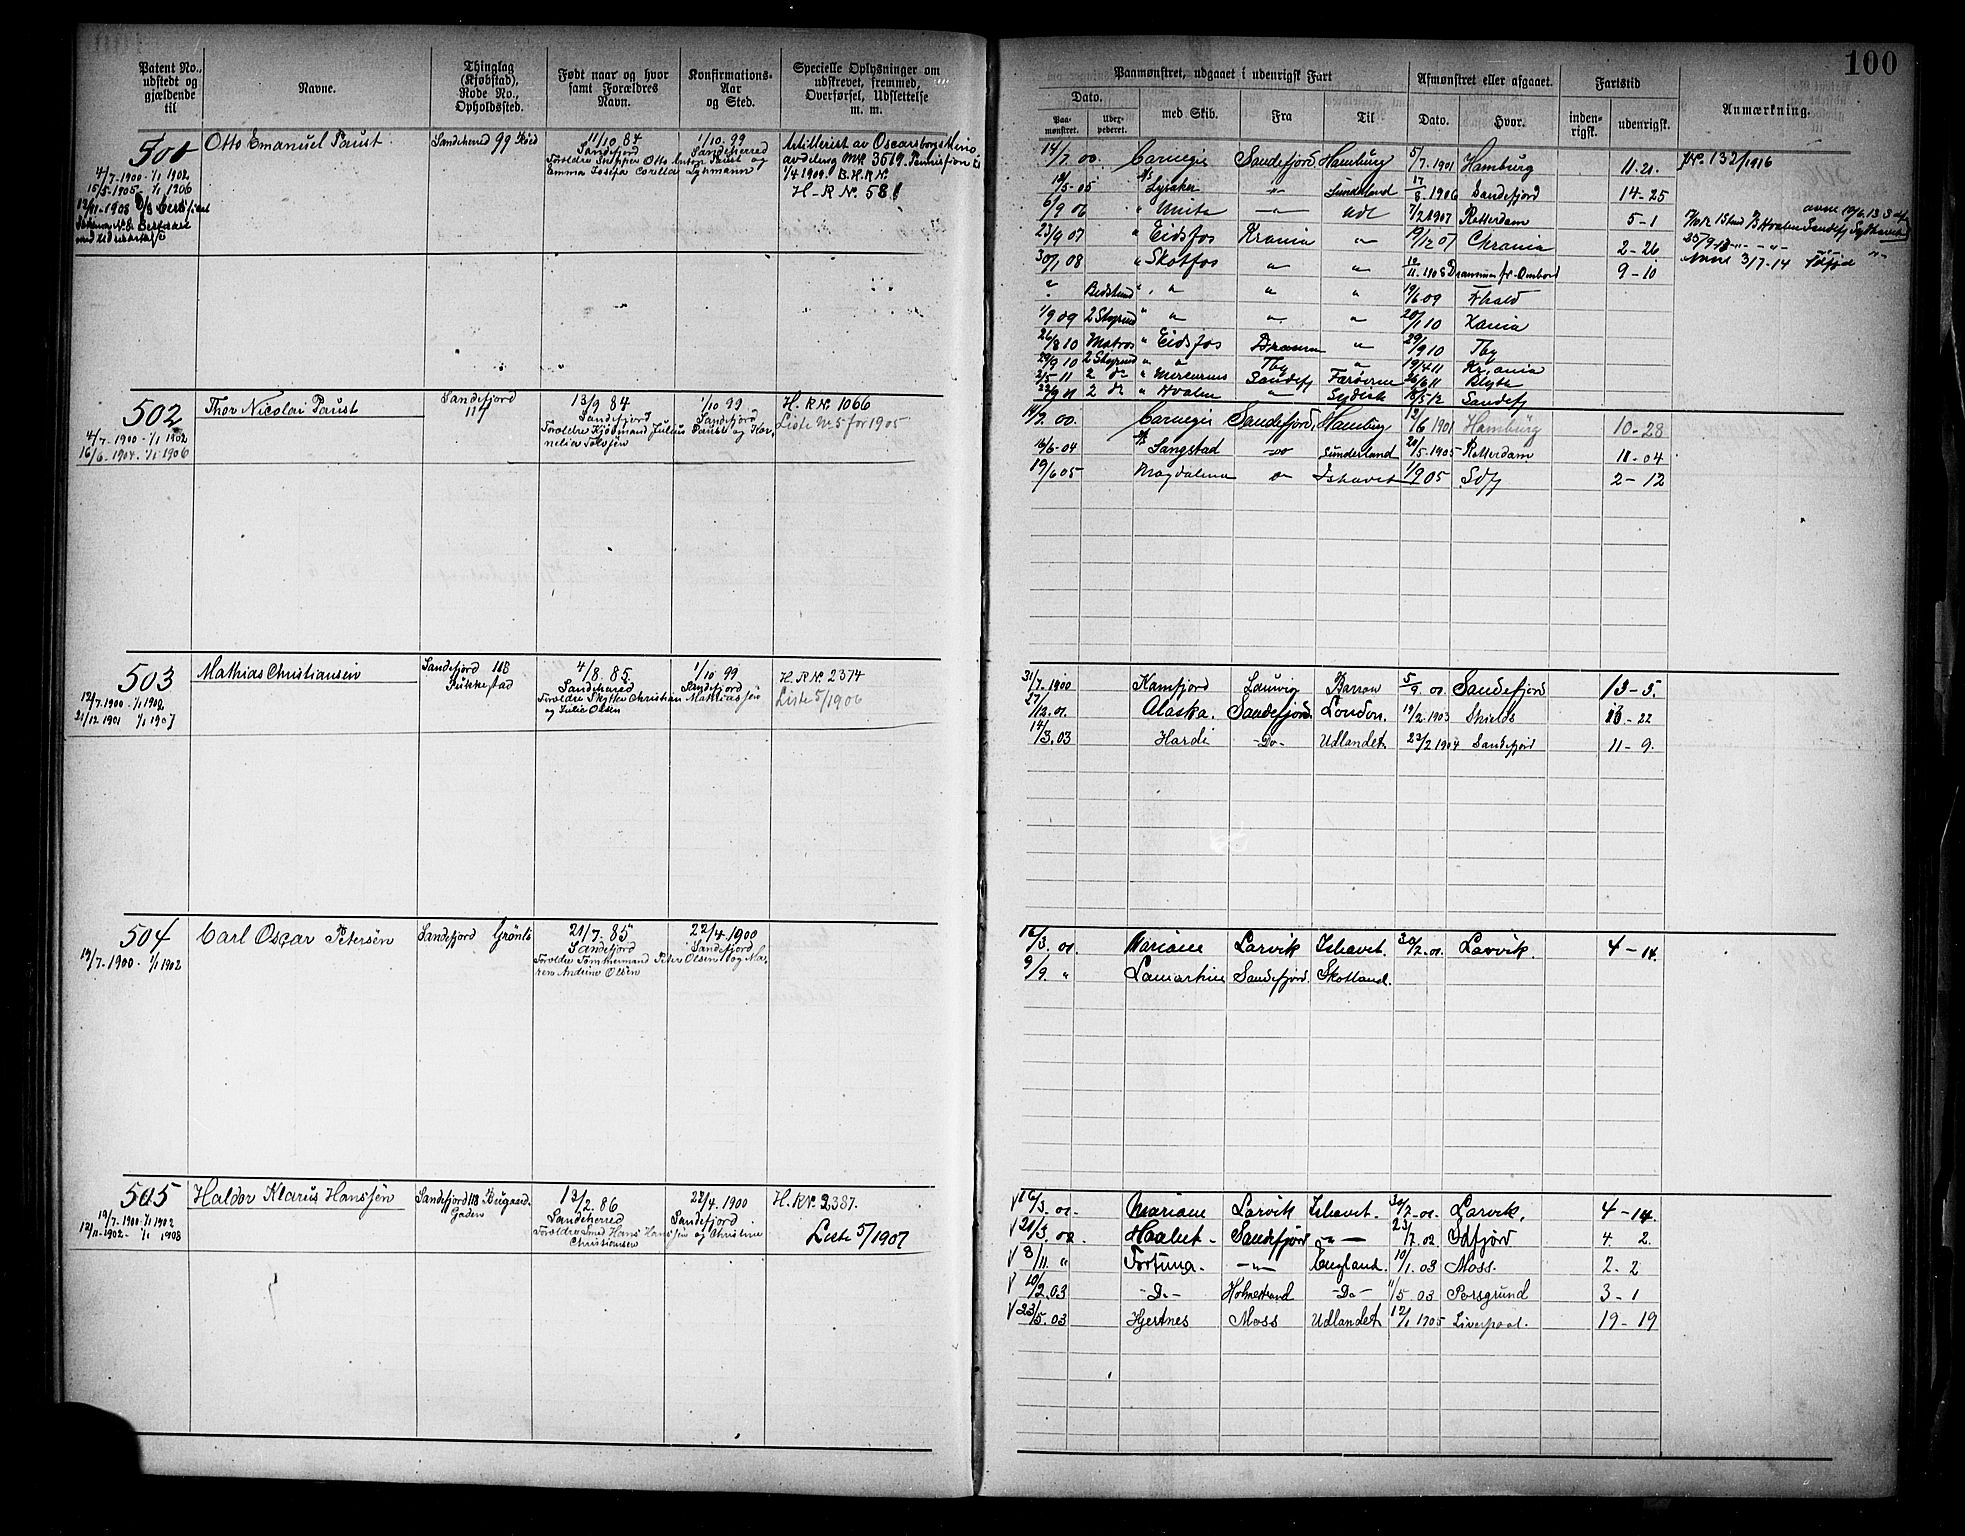 100
Patent No., udstedt og gjældende til
Navne.
Thinglag (Kjøbstad), Rode No., Opholdssted.
Født naar og hvor samt Forældres Navn.
Konfirmations-Aar og Sted.
Specielle Oplysninger om udskrevet, fremmed, Overførsel, Udslettelse m. m.
Paamønstret, udgaaet i udenrigsk Fart
Afmønstret eller afgaaet.
Fartstid
Anmærkning.
Dato.
Paa-mønstret.
med Skib.
Fra
Til
Dato.
Hvor.
inden-rigsk.
udenrigsk.
501
4/7.1900-1/1 1902
15/5.1905-1/1 1906
Otto Emanuel Paust
Sandeherred 99
11/10 84
Sandefjord
Forældre Skipper Otto Anton Paust og
Emma Josefa Lyhmann
1/10.99
Sandeherred
Artillerist av Oscarsborgs Mine
avdeling No. 3519.
1/4 1909.
H-R No. 581
14/7.00. Carnegie Sandefjord Hamburg 5/7.1901 Hamburg 11.21. No. 132/1916
12/5-05 Lysaker Sunderland 17/8-1906 Sandefjord 14-25
6/9 06 " Unita Udl 7/2 1907 Rotterdam 5-1
23/9 07 " Eidsfos Krania " 19/12 07 Chrania 2-26
30/1 08 " Skotfos " " Drammen fr. Ombord 9-10
" Bedstmd " " " " 19/6 09 Fhald
1/9 09 " " " " 20/1 10 Kania
26/8 10 Matros " Eidsfos Dramn " 29/9 10 Tbg
29/9 10 " " Tbg " 19/4 11 Kr.ania
2/5 11 2 do " Mercurius Sandefj Færøerne 26/6 11 Blyth
22/9 11 2 do " Hvalen " Sydish 18/5 12 Sandefj
3/7-14
502
4/7.1900-1/1 1902
16/6-1904.-1/1 1906
Thor Nicolai Paust
Sandefjord
117
13/9 84
Sandefjord
Forældre Kjøbmand Julius Paust og Kornelia
1/10 99
Sandefjord
H. R No. 1066
Liste No 5 for 1905
14/7.00. Carnegie Sandefjord, Hamburg 12/6 1901 Hamburg 10-28
16/6-04 Sangstad Sunderland 20/5-1905 Rotterdam 11-04
19/6 05 Magdalena Ishavet 1/9 05 Sdfj 2-12
503
12/7.1900-1/1 1902
21/12 1901 1/1 1907
Mathias Christiansen
Sandefjord 118
Pukkestad
4/8.85.
Sandeherred
Forældre Skytter Christian Mathiassen
og Julie Olsen
1/10 99
Sandefjord
H. R No. 2374
Liste 5/1906
31/7.1900 Kamfjord Laurvig Barrow 5/9 01. Sandefjord 13-5.
17/12.01. Alaska. Sandefjord. London. 19/2.1903 Shields 16-22
14/3.03 Hardi -Do- Udlandet 23/2 1904 Sandefjord 11-9.
504
12/7.1900-1/1 1902
Carl Oscar Petersen
Sandefjord
21/7.85
Sandefjord
Forældre Tømmermand Peter Olsen og Maren Andrine Olsen
22/4.1900
Sandefjord
16/3.01. Mariane Larvik Ishavet. 30/7.01. Larvik. 4-14.
9/9. " Lamartine Sandefjord. Skotland.
505
12/7.1900-1/1 1902
12/11-1902.-1/1 1908
Haldor Klarus Hanssen
Sandefjord 118 Bugaards
Gaden
13/2.86
Sandeherred
Forældre Smed Hans Hanssen og Christine
Christiansen
22/4.1900
Sandefjord
H. R No. 2387.
Liste 5/1907
16/3.01. Mariane Larvik Ishavet. 30/7-01. Larvik. 4-14.
20/3.02. Haabet. Sandefjord -"- 23/7.02 Sdfjord 4. 2.
8/11 " Fortuna. -"- England. 10/1.03 Moss. 2-2
10/2.03 -Do- Holmestrand -Do- "/5 03 Porsgrund 3-1
23/5.03 Hjertnes Moss Udlandet 12/1 1905 Liverpool. 19-19